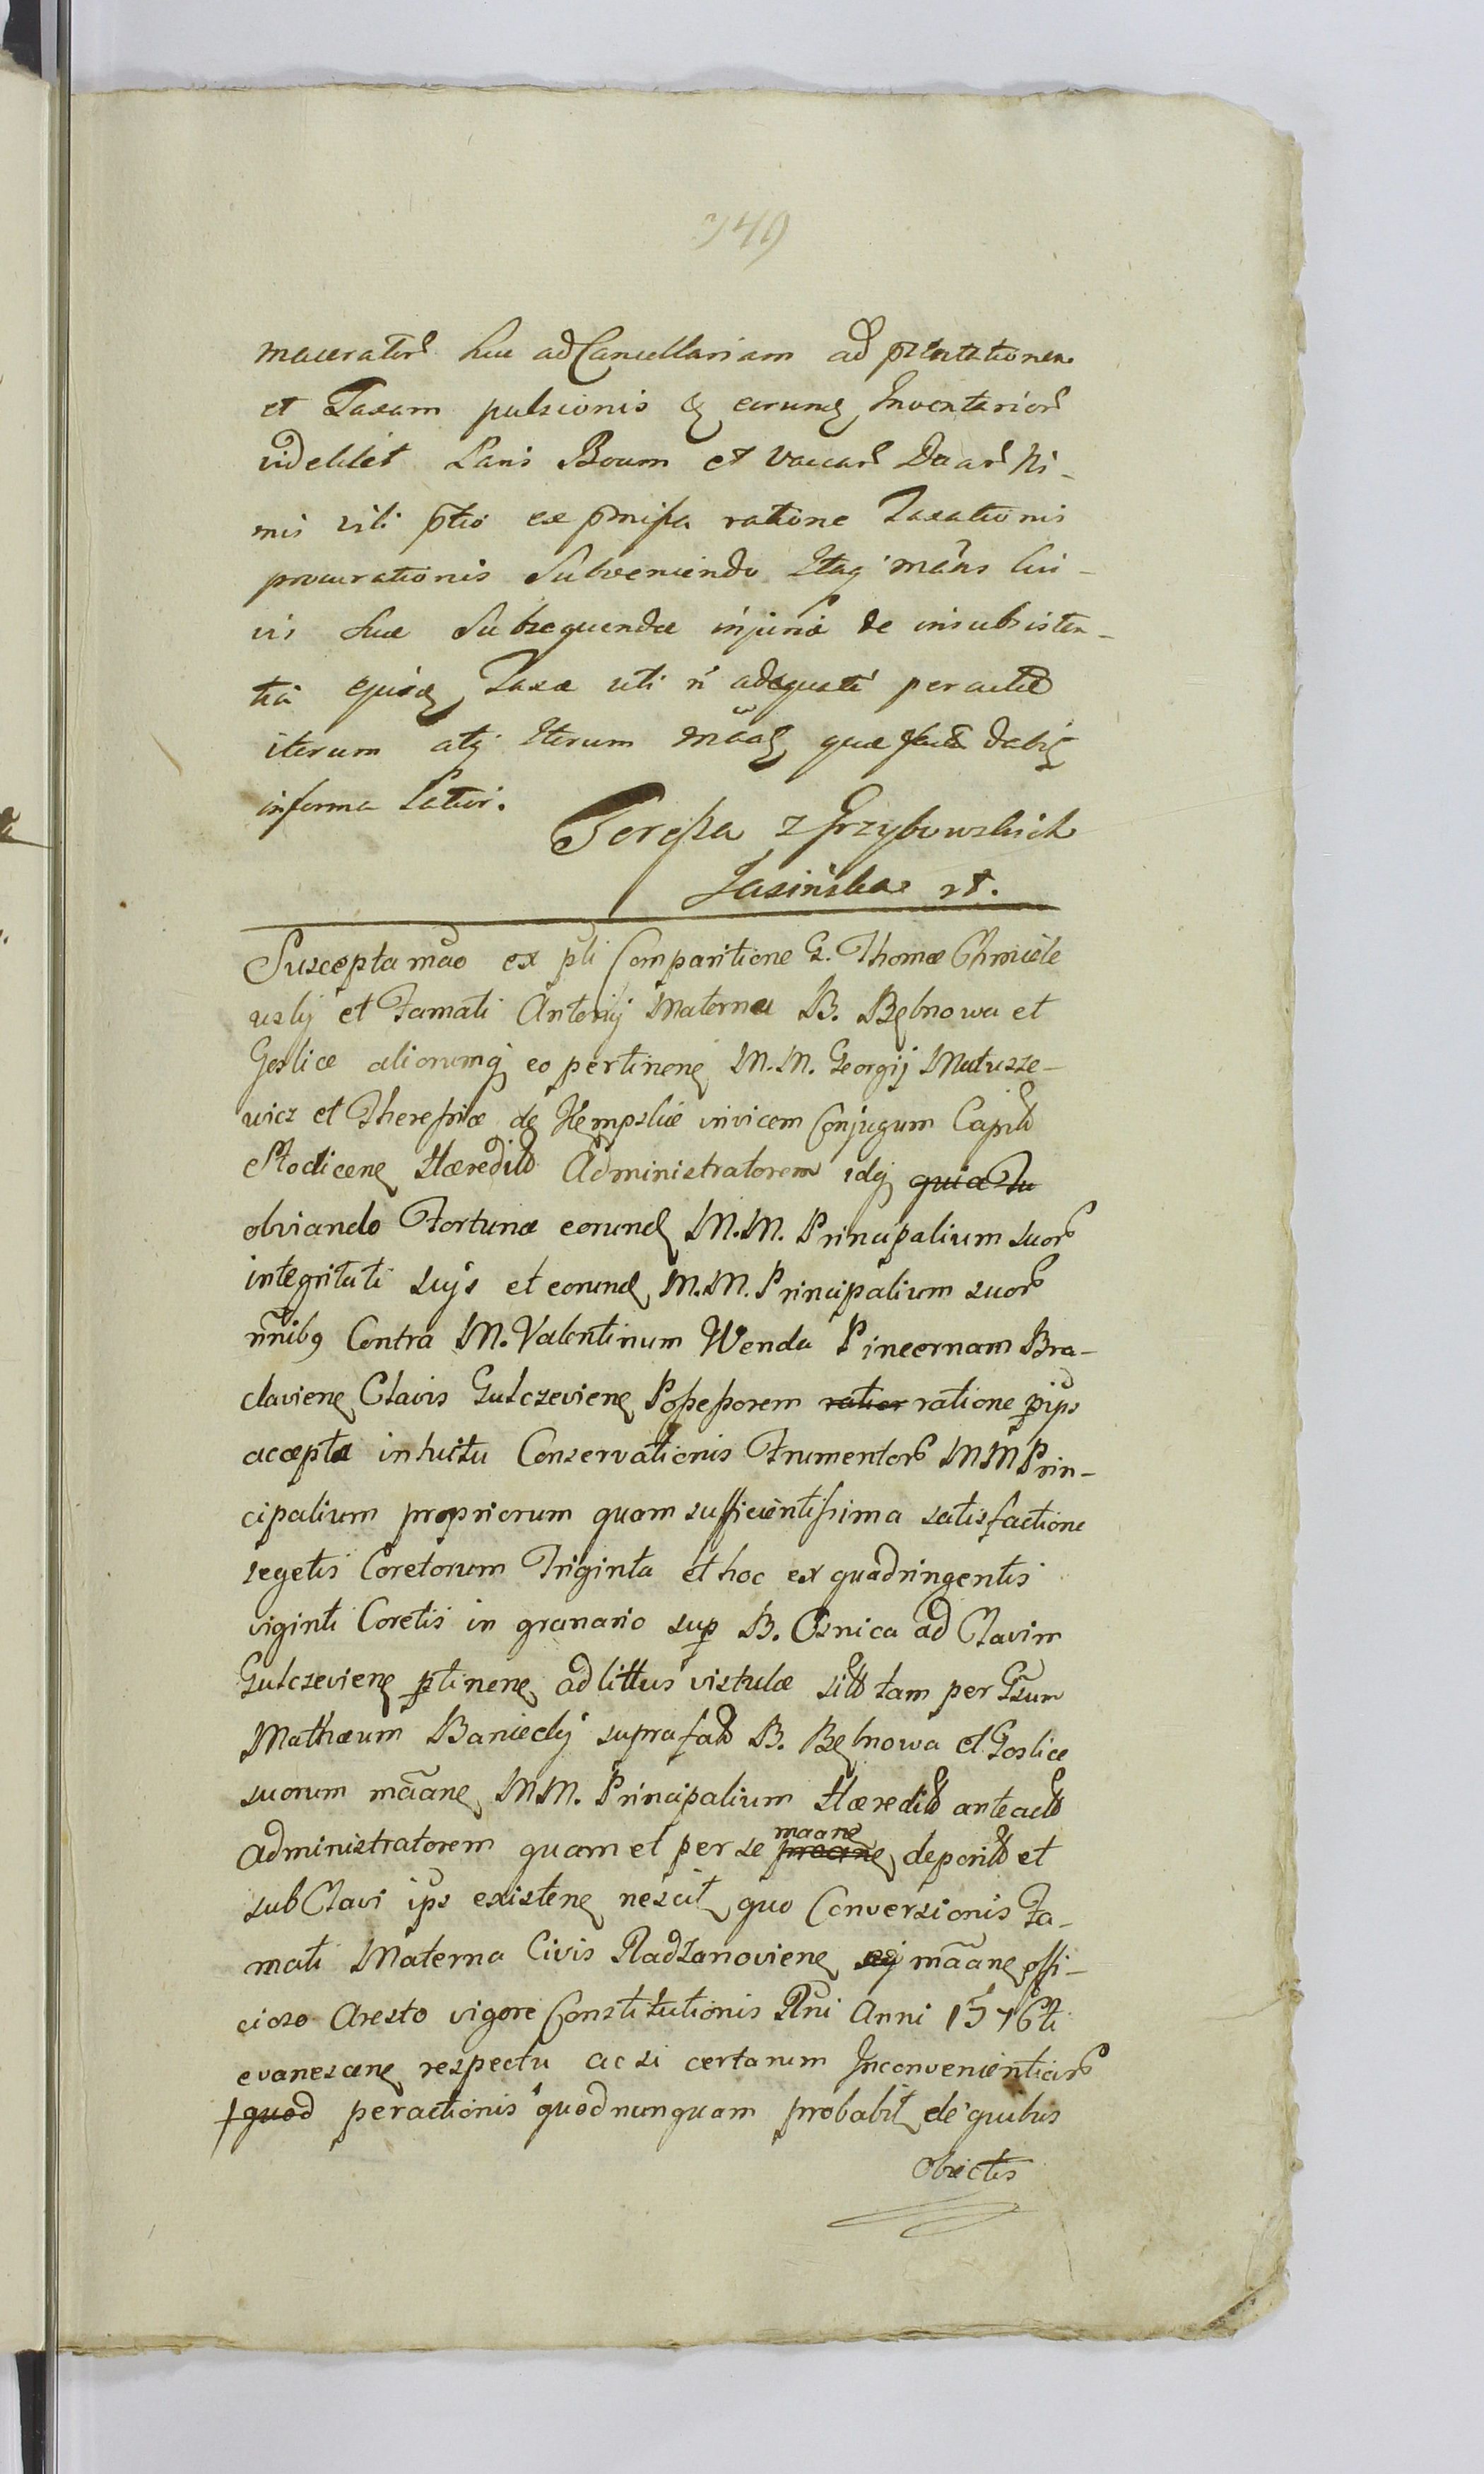 349
huc ad Cancellariam ad
et Taxam pulsionis Inventarior
videlicet Boum et Vaccar Duar Ni-
mis vili ptio ex pmissa ratione Taxationis
procurationis Subveniendo Itaq
vis Suae Subsequendae injuria de insubsisten-
tia Taxae uti ń adaequate peractae
iterum atq Iterum quae
in forma Latior.
Teressa z Grzybowskich
Jasińska
Suscepta ex pti Comparitione G. Thomae Chmiele
wskij et Famati Antonij Materna B. Bębnowa et
Goslice aliorumq eo pertinen M.M. Georgij Matusze-
wicz et Theressiae de Hempskie invicem Conjugum Capit
Stoclicen Haeredit Administratorem idq quia Tu
obviando Fortunae eorund M.M. Principalium suor
integritati suijs et eorund M.M. Principalium suor
nnibq Contra M. Valentinum Wenda Pincernam Bra-
clavien Clavis Gulczevien Possessorem ratior ratione pips
accepta intuitu Conservationis Frumentor MM Prin-
cipalium propriorum quam sufficientissima satisfactione
segetis Coretorum Triginta et hoc ex quadringentis
viginti Coretis in granario sup B. Osnica ad Clavim
Gulczevien ptinen ad littus vistulae sitt tam per Gsum
Mathaeum Banieckj suprafatt B. Bębnowa et Goslice
suorum mãane MM. Principalium Haeredit anteact
administratorem quam et per se maane deposit et
sub Clavi ips existen nescit quo Conversionis Fa-
mati Materna Civis Radzanovien mãane offi-
cioso Aresto vigore Constitutionis Rni Anni 1576ti
evanescen respectu ac si certarum Inconvenientiar
quod peractionis quod nunquam probabit de quibus
obiectis